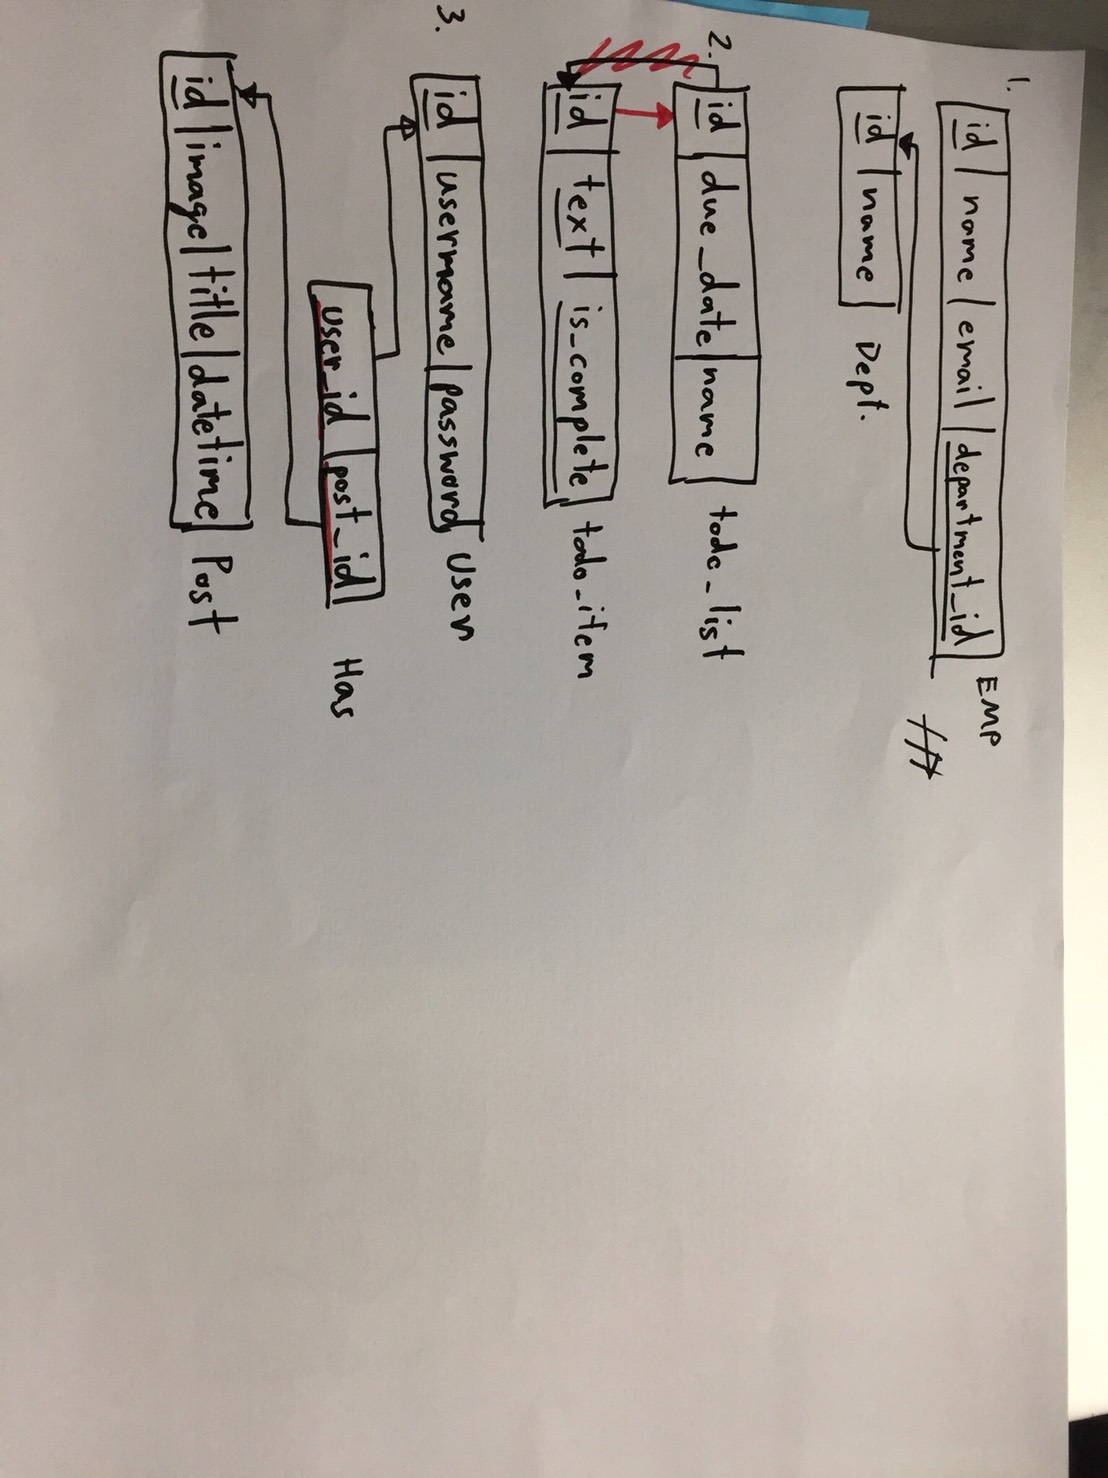 1.
id | name | email | department_id EMP
id | name Dept.
2.
id | due_date | name todo_list
id | text | is_complete todo_item
3.
id | username | password User
user_id | post_id Has
id | image | title | datetime Post